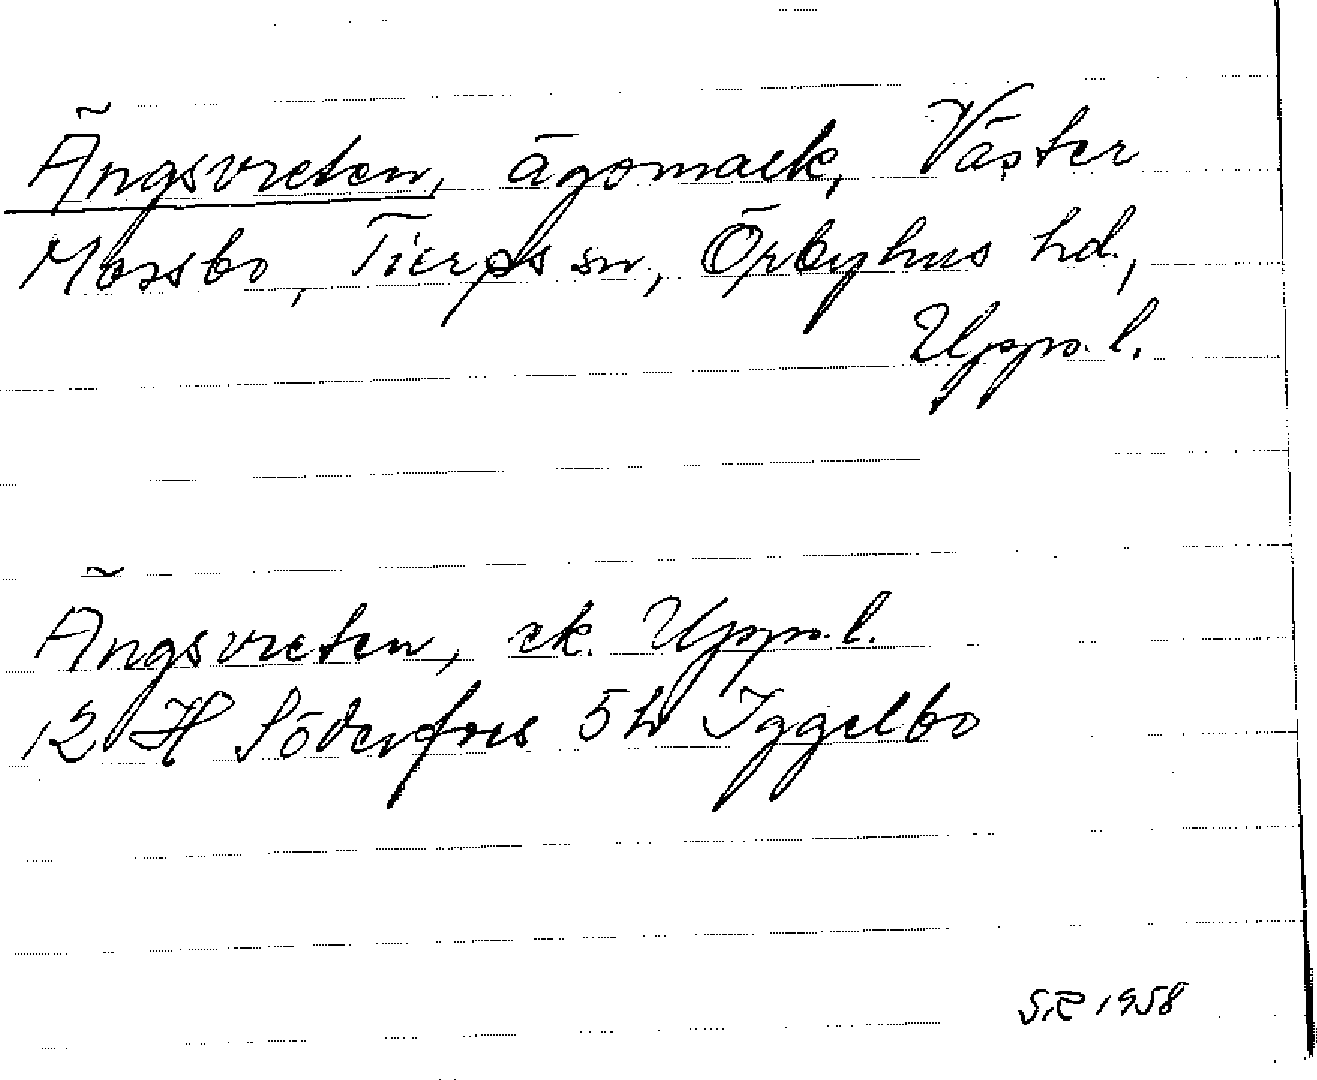 Ängsvreten, ägomark, Väster
Mossbo, Tierps sn, Örbyhus hd,
Uppl.
Ängsvreten, ek. Uppl.
12 H Söderfors 5 h Iggelbo
SR 1958